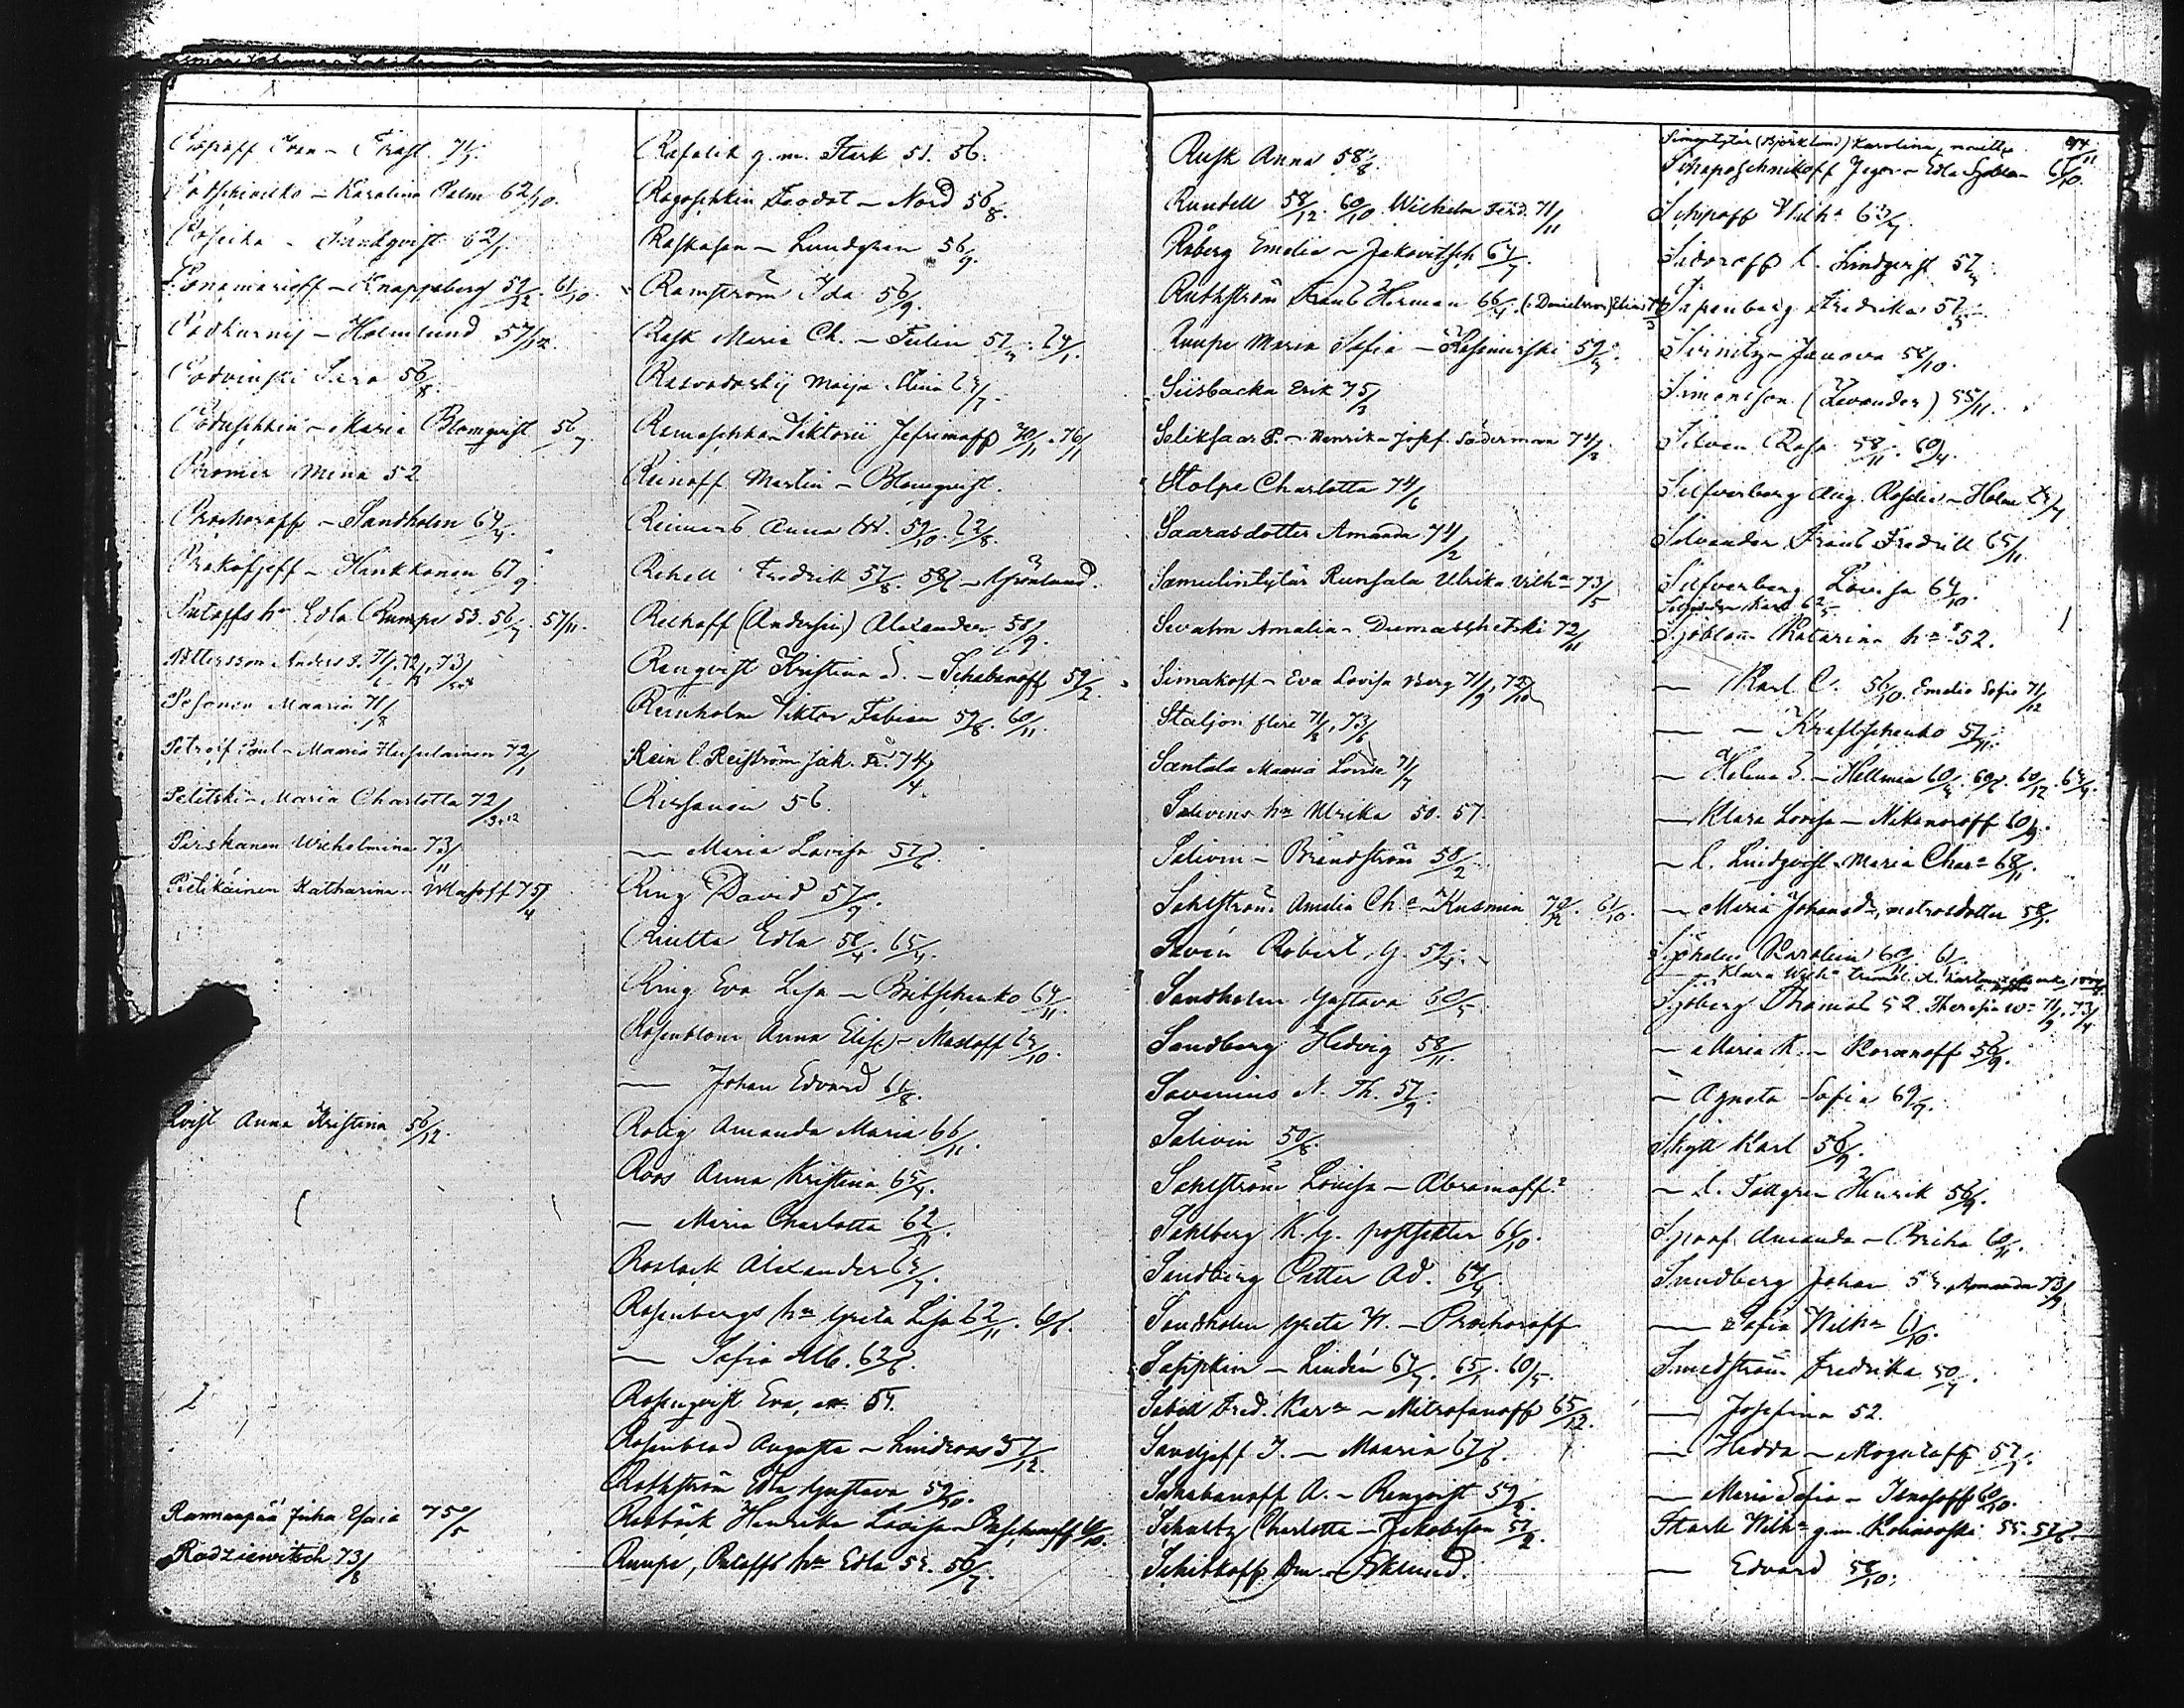 Popoff Ivan - Trast. 71/5.
Potschinilko - Karolina Palm 62/10.
- Sandqvist 62/1
Ponamarioff - Knappsberg 52/12. 61/10.
Podkurnij - Holmlund 57/12.
Podvinski Sara 56/8.
Poduschkin - Maria Blomqvist 56/7
Promer Mina 52
Prochoroff - Sandholm 64/4.
Prokofjeff - Hankkonen 67/9.
Putoffs hu Edla Rumpe 53. 56/7. 57/11.
Pettersson Anders 71/, 72/, 73/
Pesonen Maaria 71/8
Petroff Paul - Maaria 72/1
Pelitski - Maria Charlotta 72/3.12
Pirskanen Wilhelmina 73/11
Pielikäinen Katharina - Wlasoff 75/4
Qvist Anna Kristina 56/12.
Rannanpää Juha Esaia 75/5
Radziewitsch 73/8
Rafalik g.m. Stark 51. 56.
Ragoschkin Feodot - Nord 56/8.
Raskasen - Lundgren 56/9.
Ramström Ida 56/9.
Rask Maria Ch. - Tulin 57/. 64/1.
Rasvadovskij Maija Stina 67/7.
Ramaschka Viktorii Jefrimoff 70/11. 76/11
Reinoff Martin - Blomqvist.
Reimers Anna 59/10. 62/8.
Rehell Fredrik 57/8. 58/6 - Grönlund.
Rechoff (Andersin) Alexander 58/9.
Renqvist Kristina - Schabanoff 59/2.
Reinholm Viktor Fabian 59/8. 60/11.
Rein l. Reiström Jak. Fr. 74/4
Rissanen 56.
— Maria Lovisa 57/6.
Ring David 57/9.
Riutta Edla 58/4. 65/4.
Ring Eva Lisa - Britschenko 64/11.
Rosenblom Anna Elise - Masloff 67/10.
— Johan Edvard 61/8.
Rolig Amanda Maria 66/11.
Roos Anna Kristina 65/4.
— Maria Charlotta 62/.
Roslack Alexander 67/7.
Rosenbergs hu Greta Lisa 62/11. 60/6.
— Sofia Alb. 62/6.
Rosenqvist Eva, 54.
Rosenblad Augusta - Lindroos 57/12.
Rothström Edla Gustava 59/10.
Rosbäck Henrika Lovisa - 60/10.
Ruupe, Putoffs hu Edla 53. 56/7.
Rusk Anna 58/8.
Rundell 58/12. 60/10. Wilhelm Ferd. 71/11
Råberg Emelie - Jakovitsch 67/7
Ruthström Frans Herman 66/4. (: Danielsson) Elias 74/3
Ruupe Maria Sofia - 59/.
Siisbacka Erik 75/3
Seliksaar P. - Henrika Josef. Söderman 74/3
Stolpe Charlotta 74/6
Saarasdotter Amanda 74/2
Samulintytär Runsala Ulrika Vilhᵃ 73/5
Swalm Amalia - Dumaschetski 72/11
Simakoff - Eva Lovisa Berg 71/9, 72/10
Staljon flere 71/8, 73/6
Santala Maaria Lovisa 71/7
Salivins hu Ulrika 50. 57.
Salivin - Brandström 58/2.
Sahlström Amalia Chᵃ - Kusmin 70/12. 61/10.
Savén Robert G. 59/4.
Sandholm Gustava 60/5.
Sandberg Hedvig 58/11.
Savenius N. Th. 57/9.
Salivin 50/8.
Sahlström Lovisa - Abramoff?
Sahlberg K. G. postsekter 66/10.
Sandberg Petter Ad. 64/4.
Sandholm Greta W. - Prochoroff
Sappkin - Lindén 67/7. 65/. 60/5.
Sabell Fred. Karᵃ - Mitrofanoff 65/12.
Saveljeff I. - Maaria 67/6.
Schabanoff A. - Renqvist 59/2.
Schultz Charlotta - Jakobsson 57/2.
Schitkoff Dm. - Eklund.
Simontytär (Björklund) Karolina, 74/11
Schaposchnikoff Jegor - Edla Sjöblom 61/10.
Schipoff Wilhᵃ 63/7.
Sidoroff l. Lindqvist 57/.
Sipenberg Fredrika 57/5.
Sirnitz - Janova 58/10.
Simonsson (Zevander) 55/11.
Silvan Rosa 58/11. 60/4.
Silfverberg Aug. Rosalia - Holm 67/7
Silvander Frans Fredrik 65/11
Silfverberg Lovisa 64/10.
Karl 62/5.
Sjöblom Katarina hu 52.
— Karl C. 56/10. Emelie Sofie 71/12
— - Kraftschenko 57/11.
— Helena S. - Hellman 60/. 60/6. 60/12. 67/9.
— Klara Lovisa - Nikanoroff 60/9.
— l. Lindqvist - Maria Charᵃ 68/11.
— Maria Johansdr, matrosdotter 58/9.
Sjöholm Karolina 60/. 61/.
— Klara Wilhᵃ
Sjöberg Thomas 52. Theresia Wᵃ 71/9, 73/4
— Maria K. - Romanoff 56/9.
— Agneta Sofia 69/7.
Skytt Karl 56/9.
— l. Tallgren Henrik 56/9.
Spoof Amanda - Briha 60/11.
Sundberg Johan 57. Amanda 73/9
— Sofia Wilhᵃ 61/10.
Smedström Fredrika 50/7.
— Josefina 52.
— Hedda - Mogutoff 57/7.
— Maria Sofia - 60/10.
Stark Wilhᵃ g.m. Kolinovski 55. 57/6.
— Edvard 58/10.